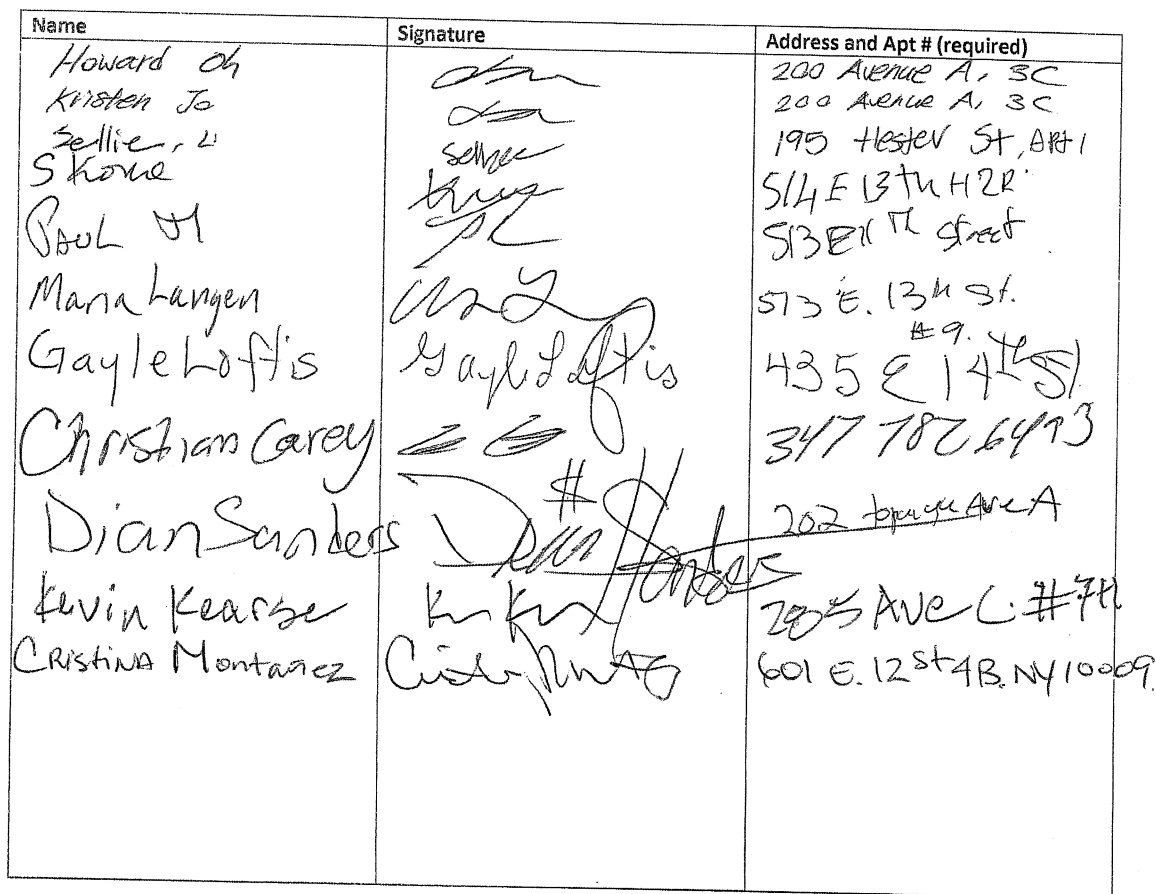 Name Signature Address and Apt # (required)
Howard Oh 200 Avenue A, 3C
Kristen Jo 200 Avenue A, 3C
Sellie, Li 195 Hester St, Apt 1
S Kome 514 E 13th
PAUL 513 E 11th Street
Maria Langen 513 E. 13th St.
#9.
Gayle Loftis Gayle Loftis 435 E 14th St
Christian Carey 347 782 6493
Dian Sanders Dian Sanders 202 Ave A
Kevin Kearse Ave C. #7H
CRISTINA Montanez 601 E. 12 St 4B. NY 10009.